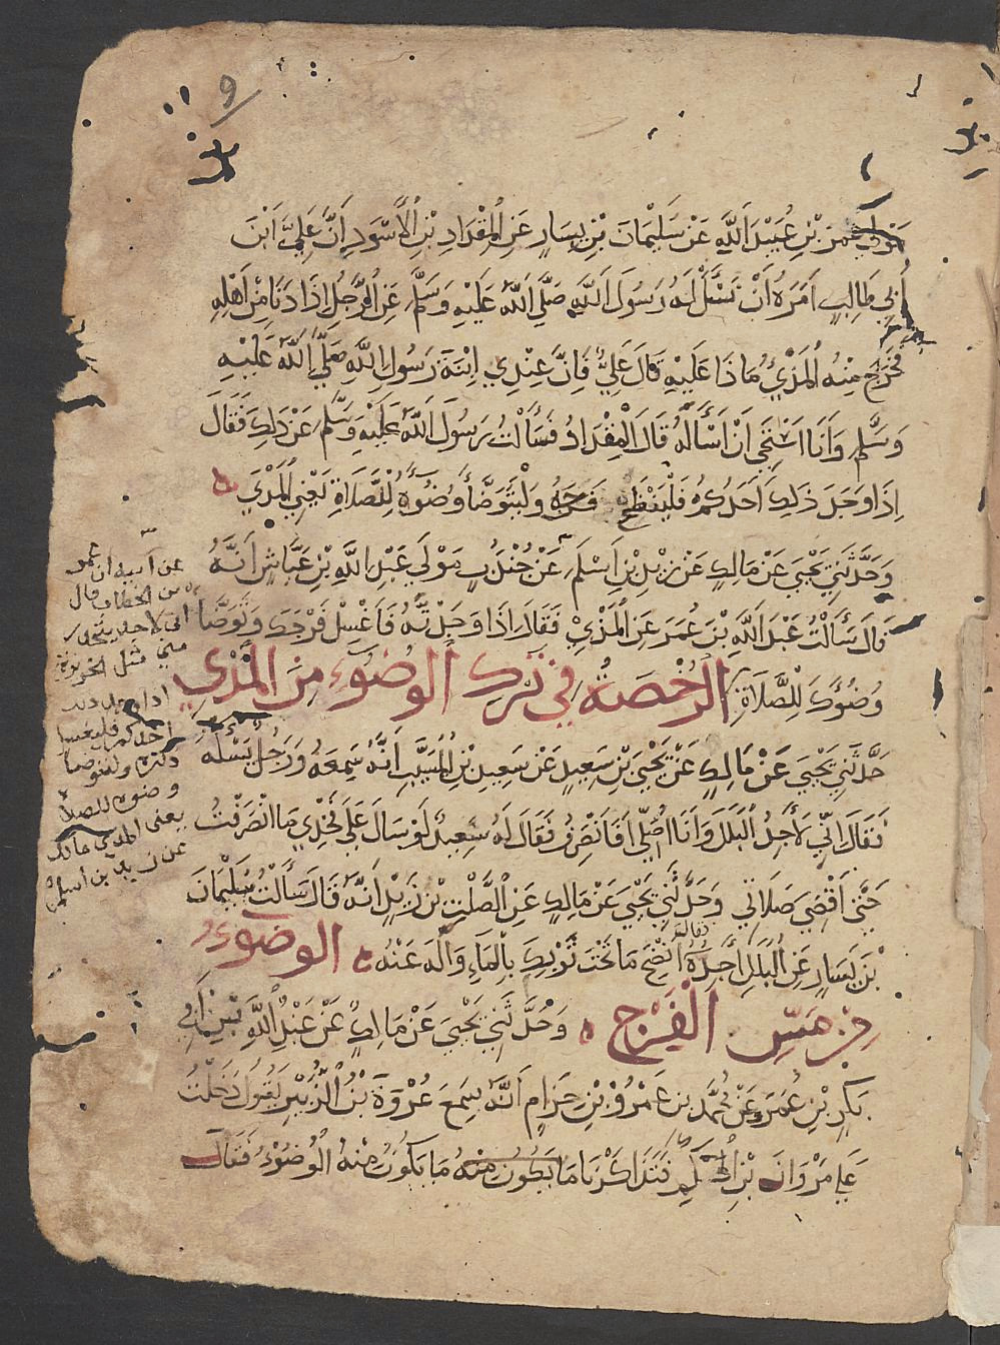 9
مَوْلَى عُمَرَ بْنِ عُبَيْدِ اَللَّهِ عَنْ سَلَيْمَانَ بْنِ يَسَارٍ عَنِ الْمِقْدَادِ بْنِ الْأَسْوَدِ اَنَّ عَلِيَّ ابْنَ
أَبِي طَالِبٍ اَمَرَهُ اَنْ يَسْئَلَ لَهُ رَسُولَ اَللَّهِ صَلَّى اَللَّهُ عَلَيْهِ وَسَلَّمَ عَنِ الرَّجُلِ اِذَا دَنَا مِنْ اَهْلِهِ
فَخَرَجَ مِنْهُ الْمَذْيُ مَاذَا عَلَيْهِ قَالَ عَلِيٌّ فَاِنَّ عِنْدِي اِبْنَةَ رَسُولِ اللَّهِ صَلَّى اَللَّهُ عَلَيْهِ
وَسَلَّمَ وَاَنَا اَسْتَحِي اَنْ اَسْأَلَهُ قَالَ الْمِقْدَادُ فَسَأَلْتُ رَسُولَ اَللَّهُ عَلَيْهِ وَسَلَّمَ عَنْ ذَلِكَ فَقَالَ
اِذَا وَجَدَ ذَلِكَ اَحَدُكُمْ فَلْيَنْضَحْ فَرْجَهُ وَلْيَتَوَضَّأْ وُضُوءَهُ لِلصَّلَاةِ يَعْنِي الْمَذْيَ
وَحَدَّثَنِي يَحْيَى عَنْ مَالِكٍ عَنْ زَيْدِ بْنِ اَسْلَمَ عَنْ جُنْدُبٍ مَوْلَى عَبْدِ اللَّهِ بْنِ عَيَّاشٍ اَنَّهُ
قَالَ سَأَلْتُ عَبْدَ اَللَّهِ بْنَ عُمَرَ عَنِ الْمَذْيِ فَقَالَ اِذَا وَجَدْتَهُ فَاغْسِلْ فَرْجَكَ وَتَوَضَّأْ
وُضُوءَكَ لِلصَّلَاةِ الرُّخْصَةُ فِي تَرْكِ الوُضُوءِ مِنَ المَذْيِ
حَدَّثَنِي يَحْيَى عَنْ مَالِكٍ عَنْ يَحْيَى بْنِ سَعِيدٍ عَنْ سَعِيدِ بْنِ الْمُسَيَّبِ اَنَّهُ سَمِعَهُ وَرَجُلٌ يَسْئَلُهُ
فَقَالَ اِنِّي لَأَجِدُ الْبَلَلَ وَاَنَا اُصَلِّي اَفَاَنْصَرِفُ فَقَالَ لَهُ سَعِيدٌ لَوْ سَالَ عَلَى فَخْذِي مَا انْصَرَفْتُ
حَتَّى اَقْضِيَ صَلَاتِي وَحَدَّثَنِي يَحْيَى عَنْ مَالِكٍ عَنِ الصَّلْتِ بْنِ زُبَيْدٍ اَنَّهُ قَالَ سَأَلْتُ سُلَيْمَانَ
بْنَ يَسَارٍ عَنِ الْبَلَلِ اَجِدُهُ فقال انْضَحْ مَا تَحْتَ ثَوْبِكَ بِالْمَاءِ وَالْهَ عَنْهُ الوضوء
مِنْ مَسِّ الْفَرْجِ وَحَدَّثَنِي يَحْيَى عَنْ مَالِكٍ عَنْ عَبْدِ اللَّهِ بْنِ أَبِي
بَكْرِ بْنِ عُمَرَ وَعَنْ مُحَمَّدِ بن عَمْرِو بْنِ حَزْمٍ اَنَّهُ سَمِعَ عُرْوَةَ بْنَ الزُّبَيْرِ يَقُولُ دَخَلْتُ
عَلَى مَرْوَانَ بْنِ الْحَكَمِ فَتَذَاكَرْنَا مَا يَكُونُ مِنْهُ مَا يَكُونُ مِنْهُ الْوُضُوءُ فَقَالَ
عن أبيه ان عمر
بن الخطاب قال
انى لاجده يتحدر
مني مثل الخريزة
اذا وجد ذلك
احدكم فليغسل
ذكره وليتوضا
وضوءه للصلاة
يعنى المذي مالك
عن زيد بن أسلم